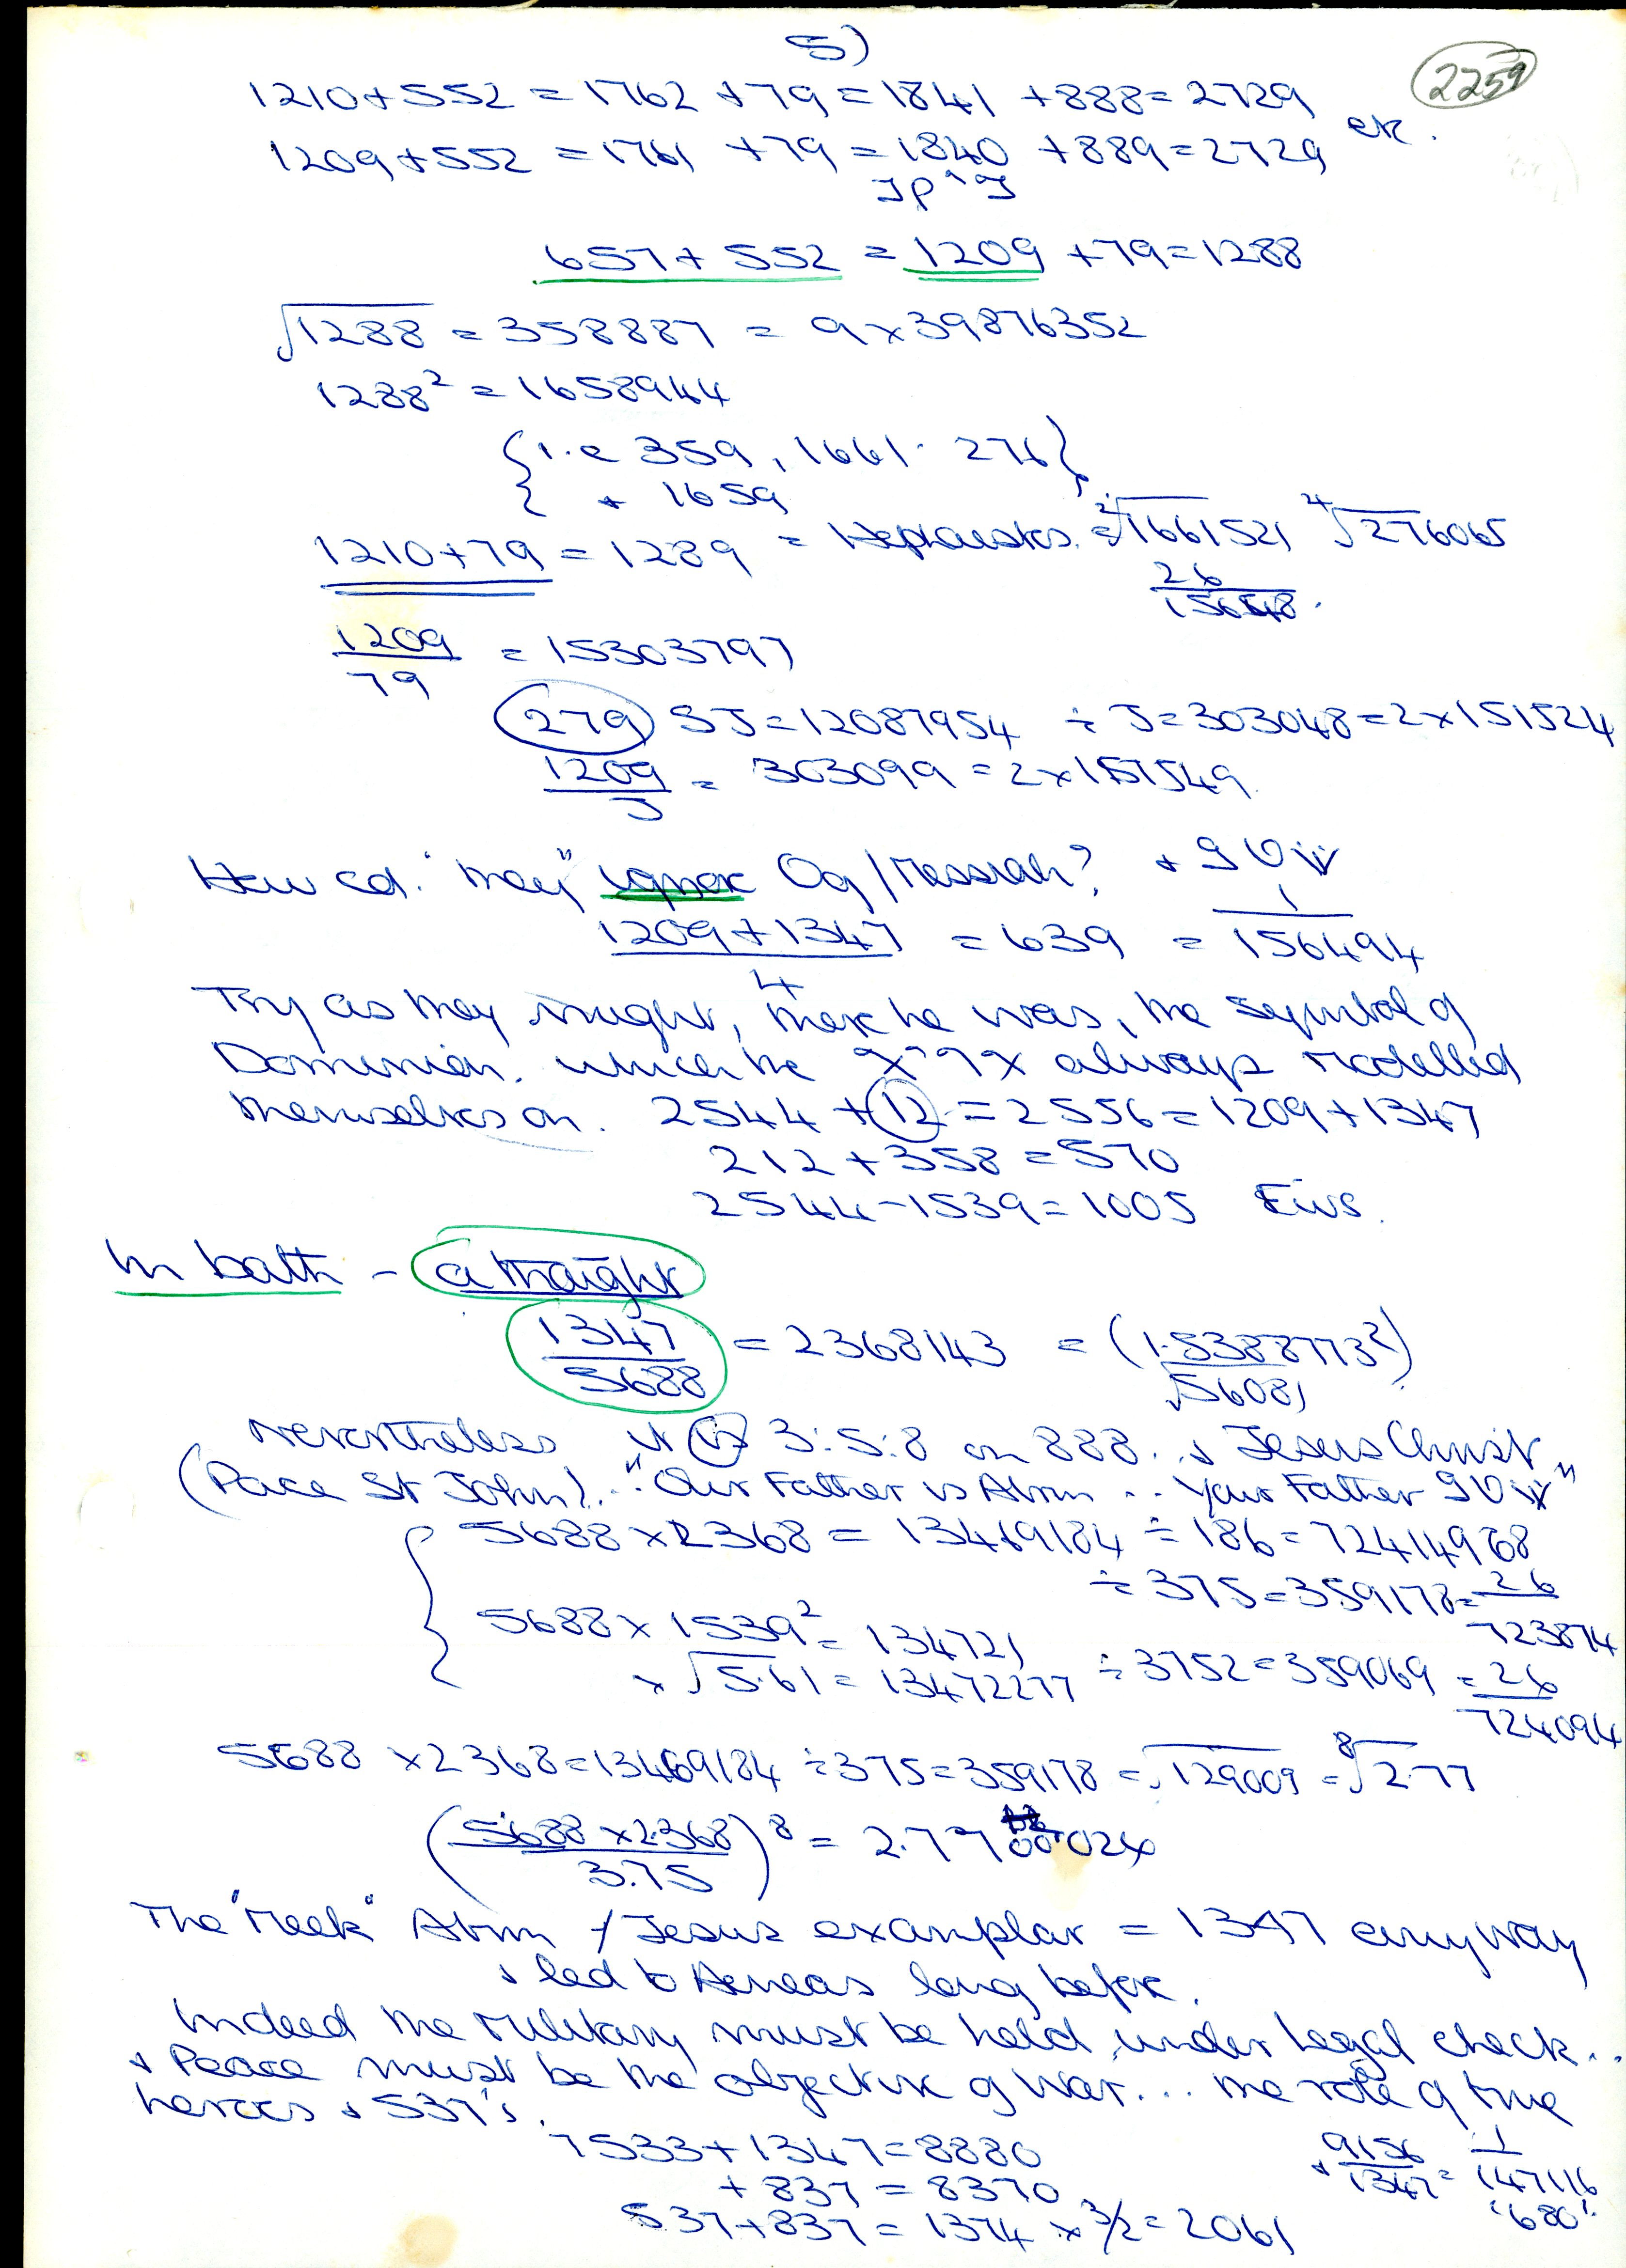 5)
2259
1210+552 = 1762 +79 = 1841 +888 = 2729
1209+552 = 1761 +79 = 1840 +889 = 2729 etc.
657 + 552 = 1209 +79 = 1288
√1288 = 358887 = 9 x 39876352
1288² = 1658944
{i.e 359, 1661. 276}
+ 1659
1210+79 = 1289 = Hephaestos. = ²√1661521 ⁴√276065
26
1209/79 = 15303797
279 SJ = 12087954 ÷ J = 303048 = 2 x 151524
1209/J = 303099 = 2 x 151549
How cd. "they" ignore Og/Messiah?
(1209+1347)/4 = 639 = 1/156494
Try as they might, there he was, the symbol of
Dominion. which the always modelled
themselves on. 2544 + 12 = 2556 = 1209+1347
212 + 358 = 570
2544 - 1539 = 1005
In bath - a thought
1347/5688 = 2368143 = (1.5388773²)
√56081
Nevertheless it is 3:5:8 on 888.. + Jesus Christ
(Pace St John). "Our Father is Abrm .. Your Father
5688 x 2368 = 13469184 ÷ 186 = 72414968
÷ 375 = 359178 = 26/723874
5688 x 1539² = 134721
x √5.61 = 13472277 ÷ 3752 = 359069 = 26/724094
5688 x 2368 = 13469184 ÷ 375 = 359178 = √129009 = ⁸√2.77
(5688 x 2.368/3.75)⁸ = 2.77 00 026
The "Meek" Abrm / Jesus examplar = 1347 anyway
+ led to Aeneas long before.
Indeed the military must be held under legal check..
+ Peace must be the objective of War... the role of true
heroes + 537's.
7533 + 1347 = 8880
+ 837 = 8370
537 + 837 = 1374 x 3/2 = 2061
+ 9156/1347 = 1/147116
'680'.